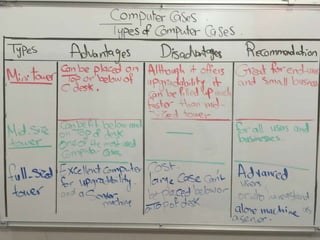 Computer Cases
Types of Computer Cases
Types
Advantages
Disadvantages
Recommendation
Mini tower
Can be placed on
Top or below of
desk.
Although it offers
upgradability it
can be filled up much
faster than mid-
sized tower
Great for end-user
and small business
Mid size
tower
Can be fit below and
on Top of desk
one of the most used
Computer Cases
for all users and
businesses.
full-size
tower
Excellent computer
for upgradability
and a Server
machine
Cost
large Case Can't
be placed below or
Top of desk
Advanced
users
alone machine
server.